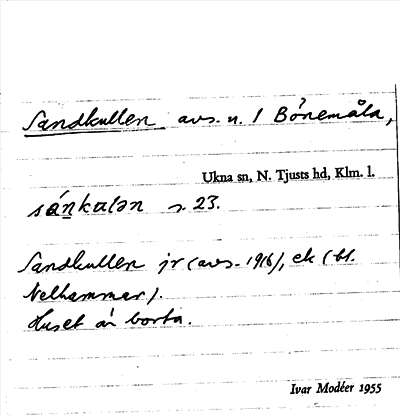 Sandkullen avs. u. / Bönemåla,
Ukna sn, N. Tjusts hd, Klm. l.
sánkɯlən s. 23.
Sandkullen jr (avs. 1916), ek (bl.
Nelhammar).
Huset är borta.
Ivar Modéer 1955